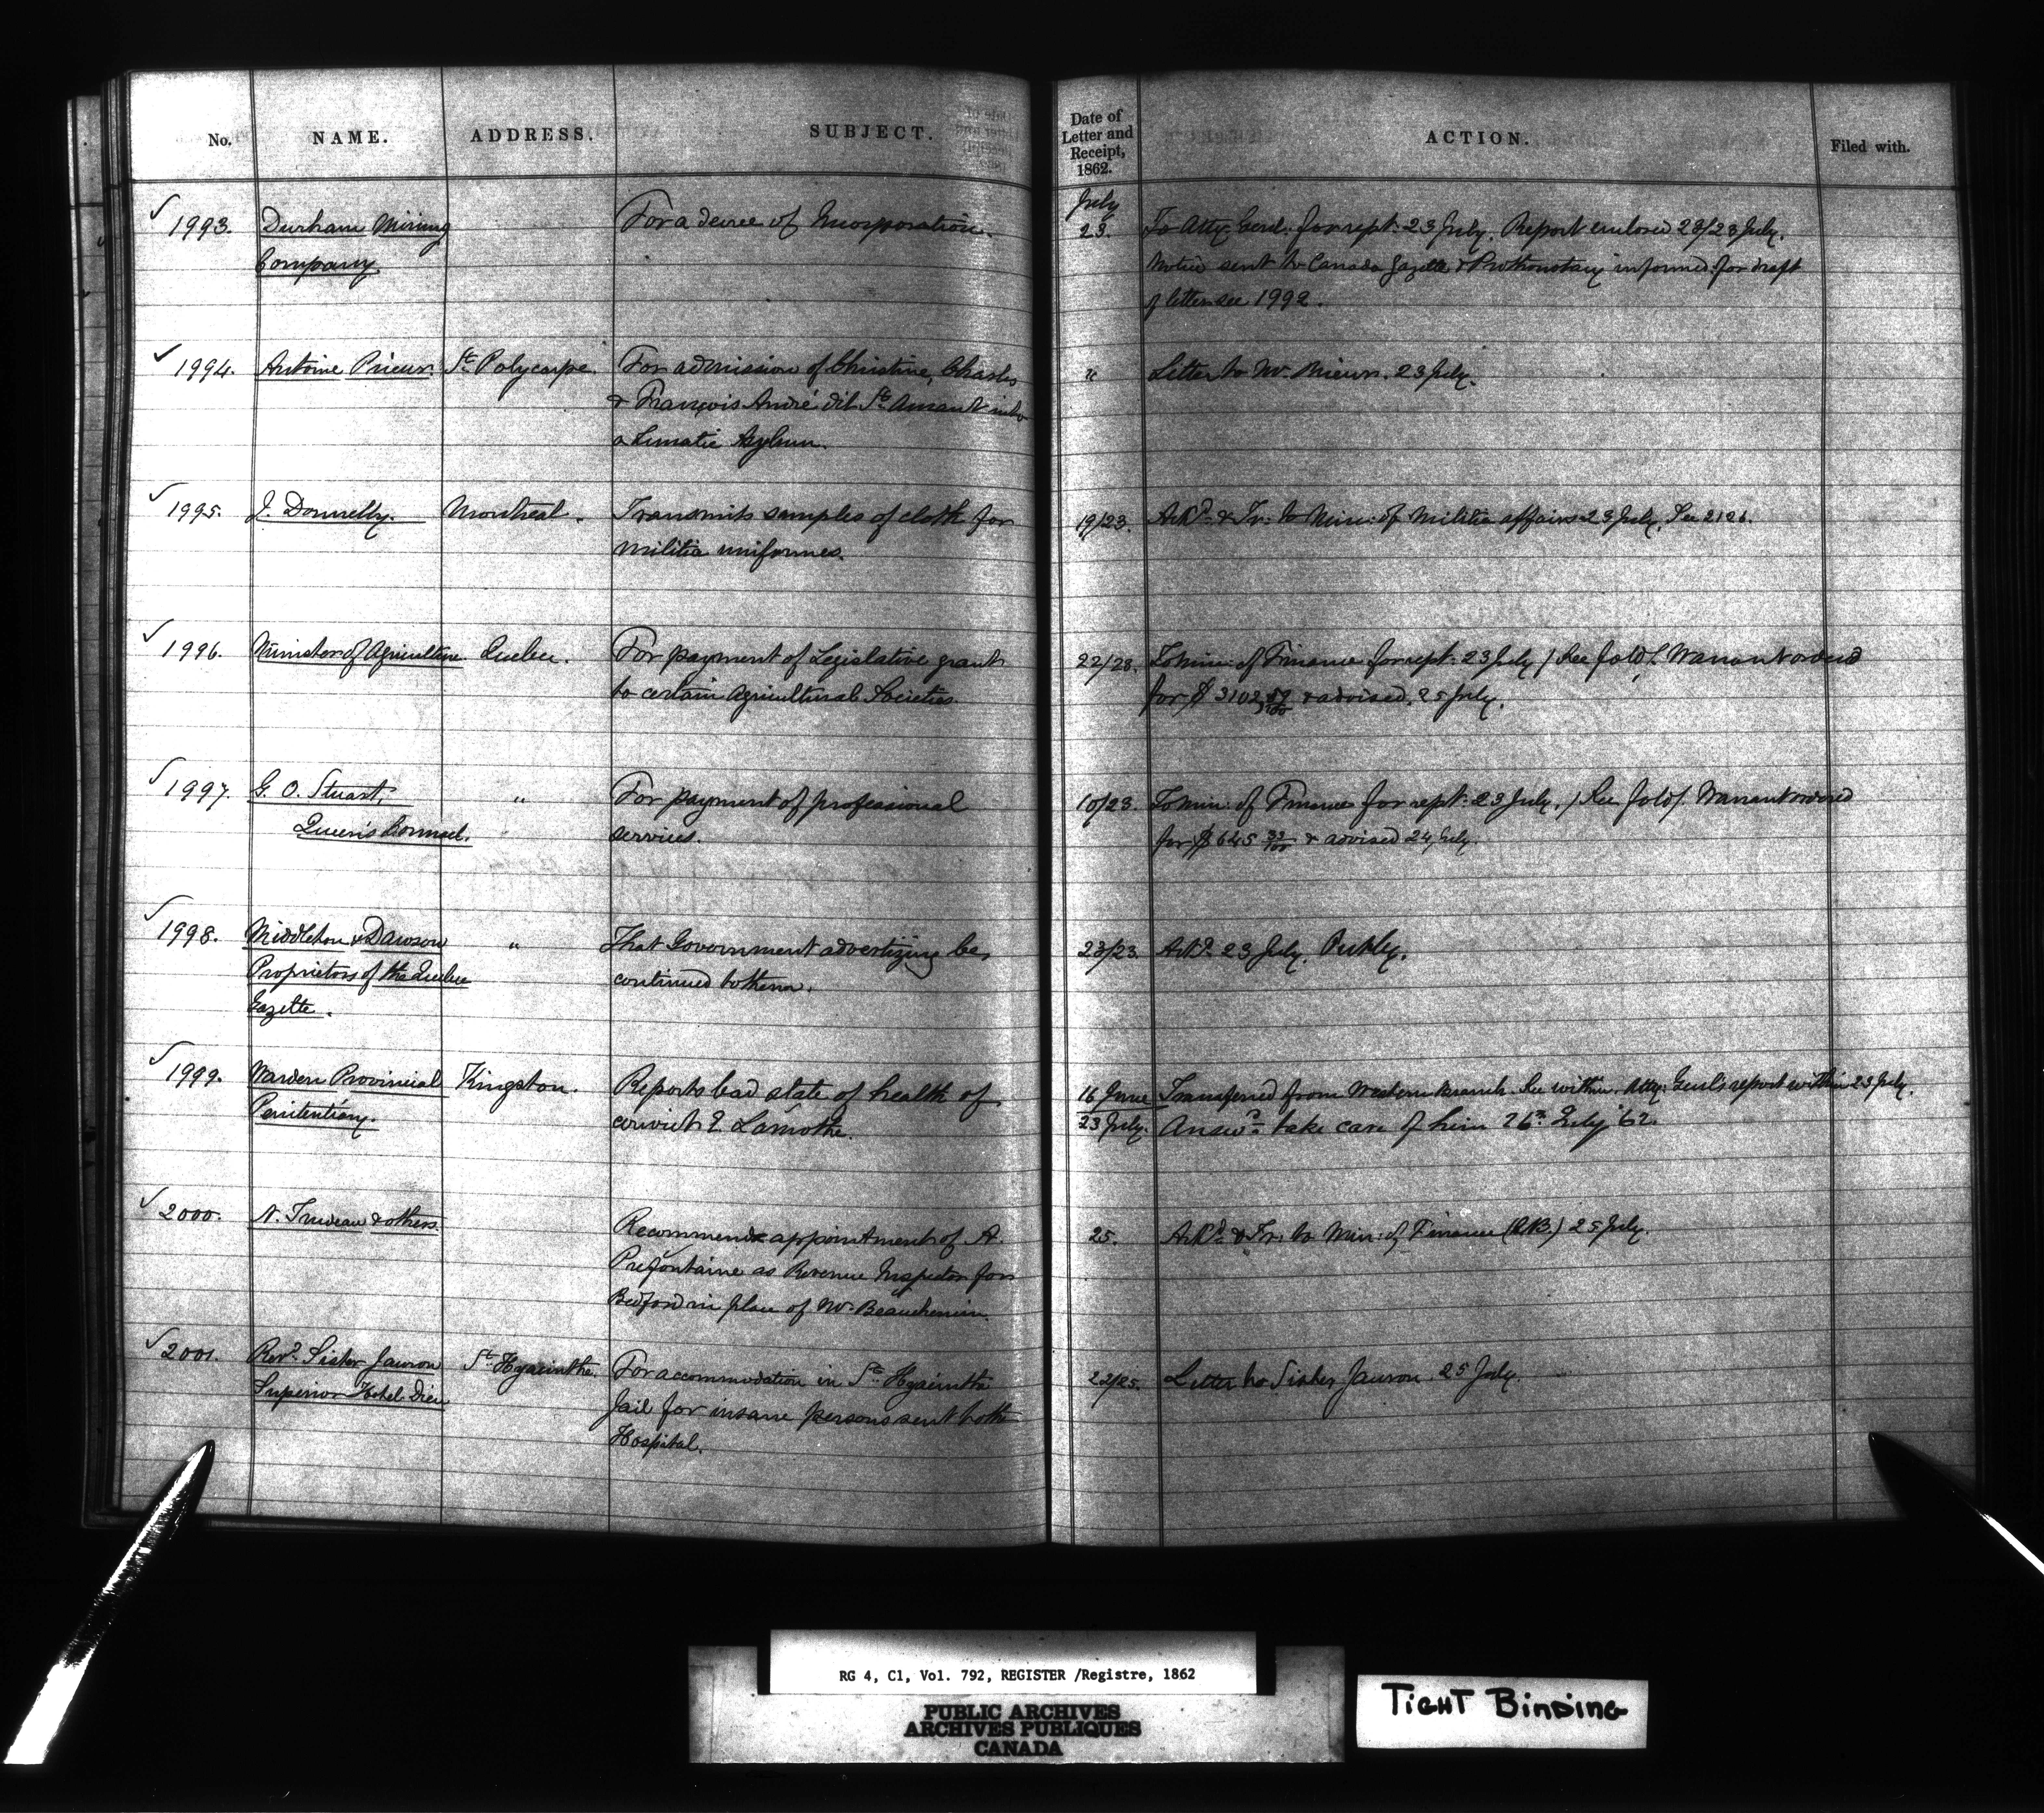 No. NAME. ADDRESS. SUBJECT. Date of Letter and Receipt, 1862. ACTION. Filed with.
July
✓ 1993. Durham Mining For a decree of Incorporation. 23. To Atty: Genl: for rept: 23 July. Report enclosed 23/23 July.
Company Notice sent to Canada Gazette & Prothonotary informed: for draft
of letter see 1992.
✓ 1994. Antoine Prieur. St. Polycarpe. For admission of Christine, Charles " Letter to Mr. Prieur. 23 July.
& François André dit St. Amant into
a Lunatic Asylum.
✓ 1995. J. Donnelly. Montreal. Transmits samples of cloth for 19/23. Ackd. & Tr: to Min: of Militia affairs 23 July. See 2126.
militia uniforms.
✓ 1996. Minister of Agriculture Quebec. For payment of Legislative grants 22/23. To min: of Finance for rept: 23 July / See fold / Warrant ordered
to certain Agricultural Societies. for $ 3102 & advised. 25 July.
✓ 1997. G. O. Stuart, " For payment of professional 10/23. To min: of Finance for rept: 23 July. / See fold / Warrant ordered
Queen's Counsel. " services. for $ 645 32/100 & advised 24 July.
✓ 1998. Middleton & Dawson " That Government advertizing be 23/23. Ackd. 23 July.
Proprietors of the Quebec continued to them.
Gazette.
✓ 1999. Warden Provincial Kingston. Reports bad state of health of 16 June Transferred from Western branch. See within. Atty: Genl's report within 23 July.
Penitentiary. convict E. Lamothe. 23 July. Answd. take care of him 26th July '62
✓ 2000. N. Trudeau & others. Recommends appointment of A. 25. Ackd. & Tr: to Min: of Finance 25 July.
Prefontaine as Revenue Inspector for
Bedford in place of Mr. Beauchemin.
✓ 2001. Revd. Sister Jauron St. Hyacinthe. For accommodation in St. Hyacinthe 22/25. Letter to Sister Jauron. 25 July.
Superior Hotel Dieu Jail for insane persons sent to the
Hospital.
RG 4, C1, Vol. 792, REGISTER /Registre, 1862
PUBLIC ARCHIVES
ARCHIVES PUBLIQUES
CANADA
TIGHT BINDING